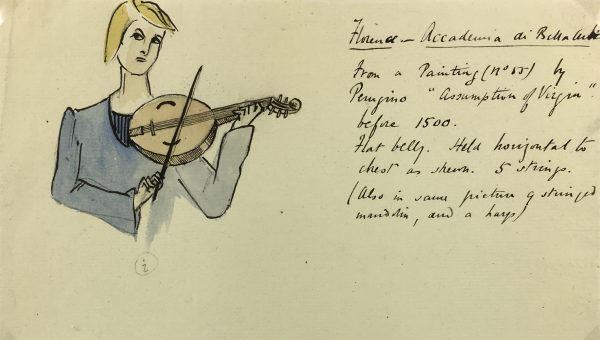 Florence - Accademia di Belle Arti
From a Painting (No 55) by
Perugino "Assumption of Virgin".
before 1500.
Flat belly. Held horizontal to
chest as shewn. 5 strings.
(Also in same picture 9 stringed
mandolin, and a harp)
i